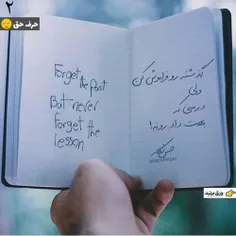 ۲
حرف حق
Forget the Past
But never
forget the
lesson
گذشته رو فراموش کن
ولی
درسی که
بهت داد رو نه!
ورق بزنید